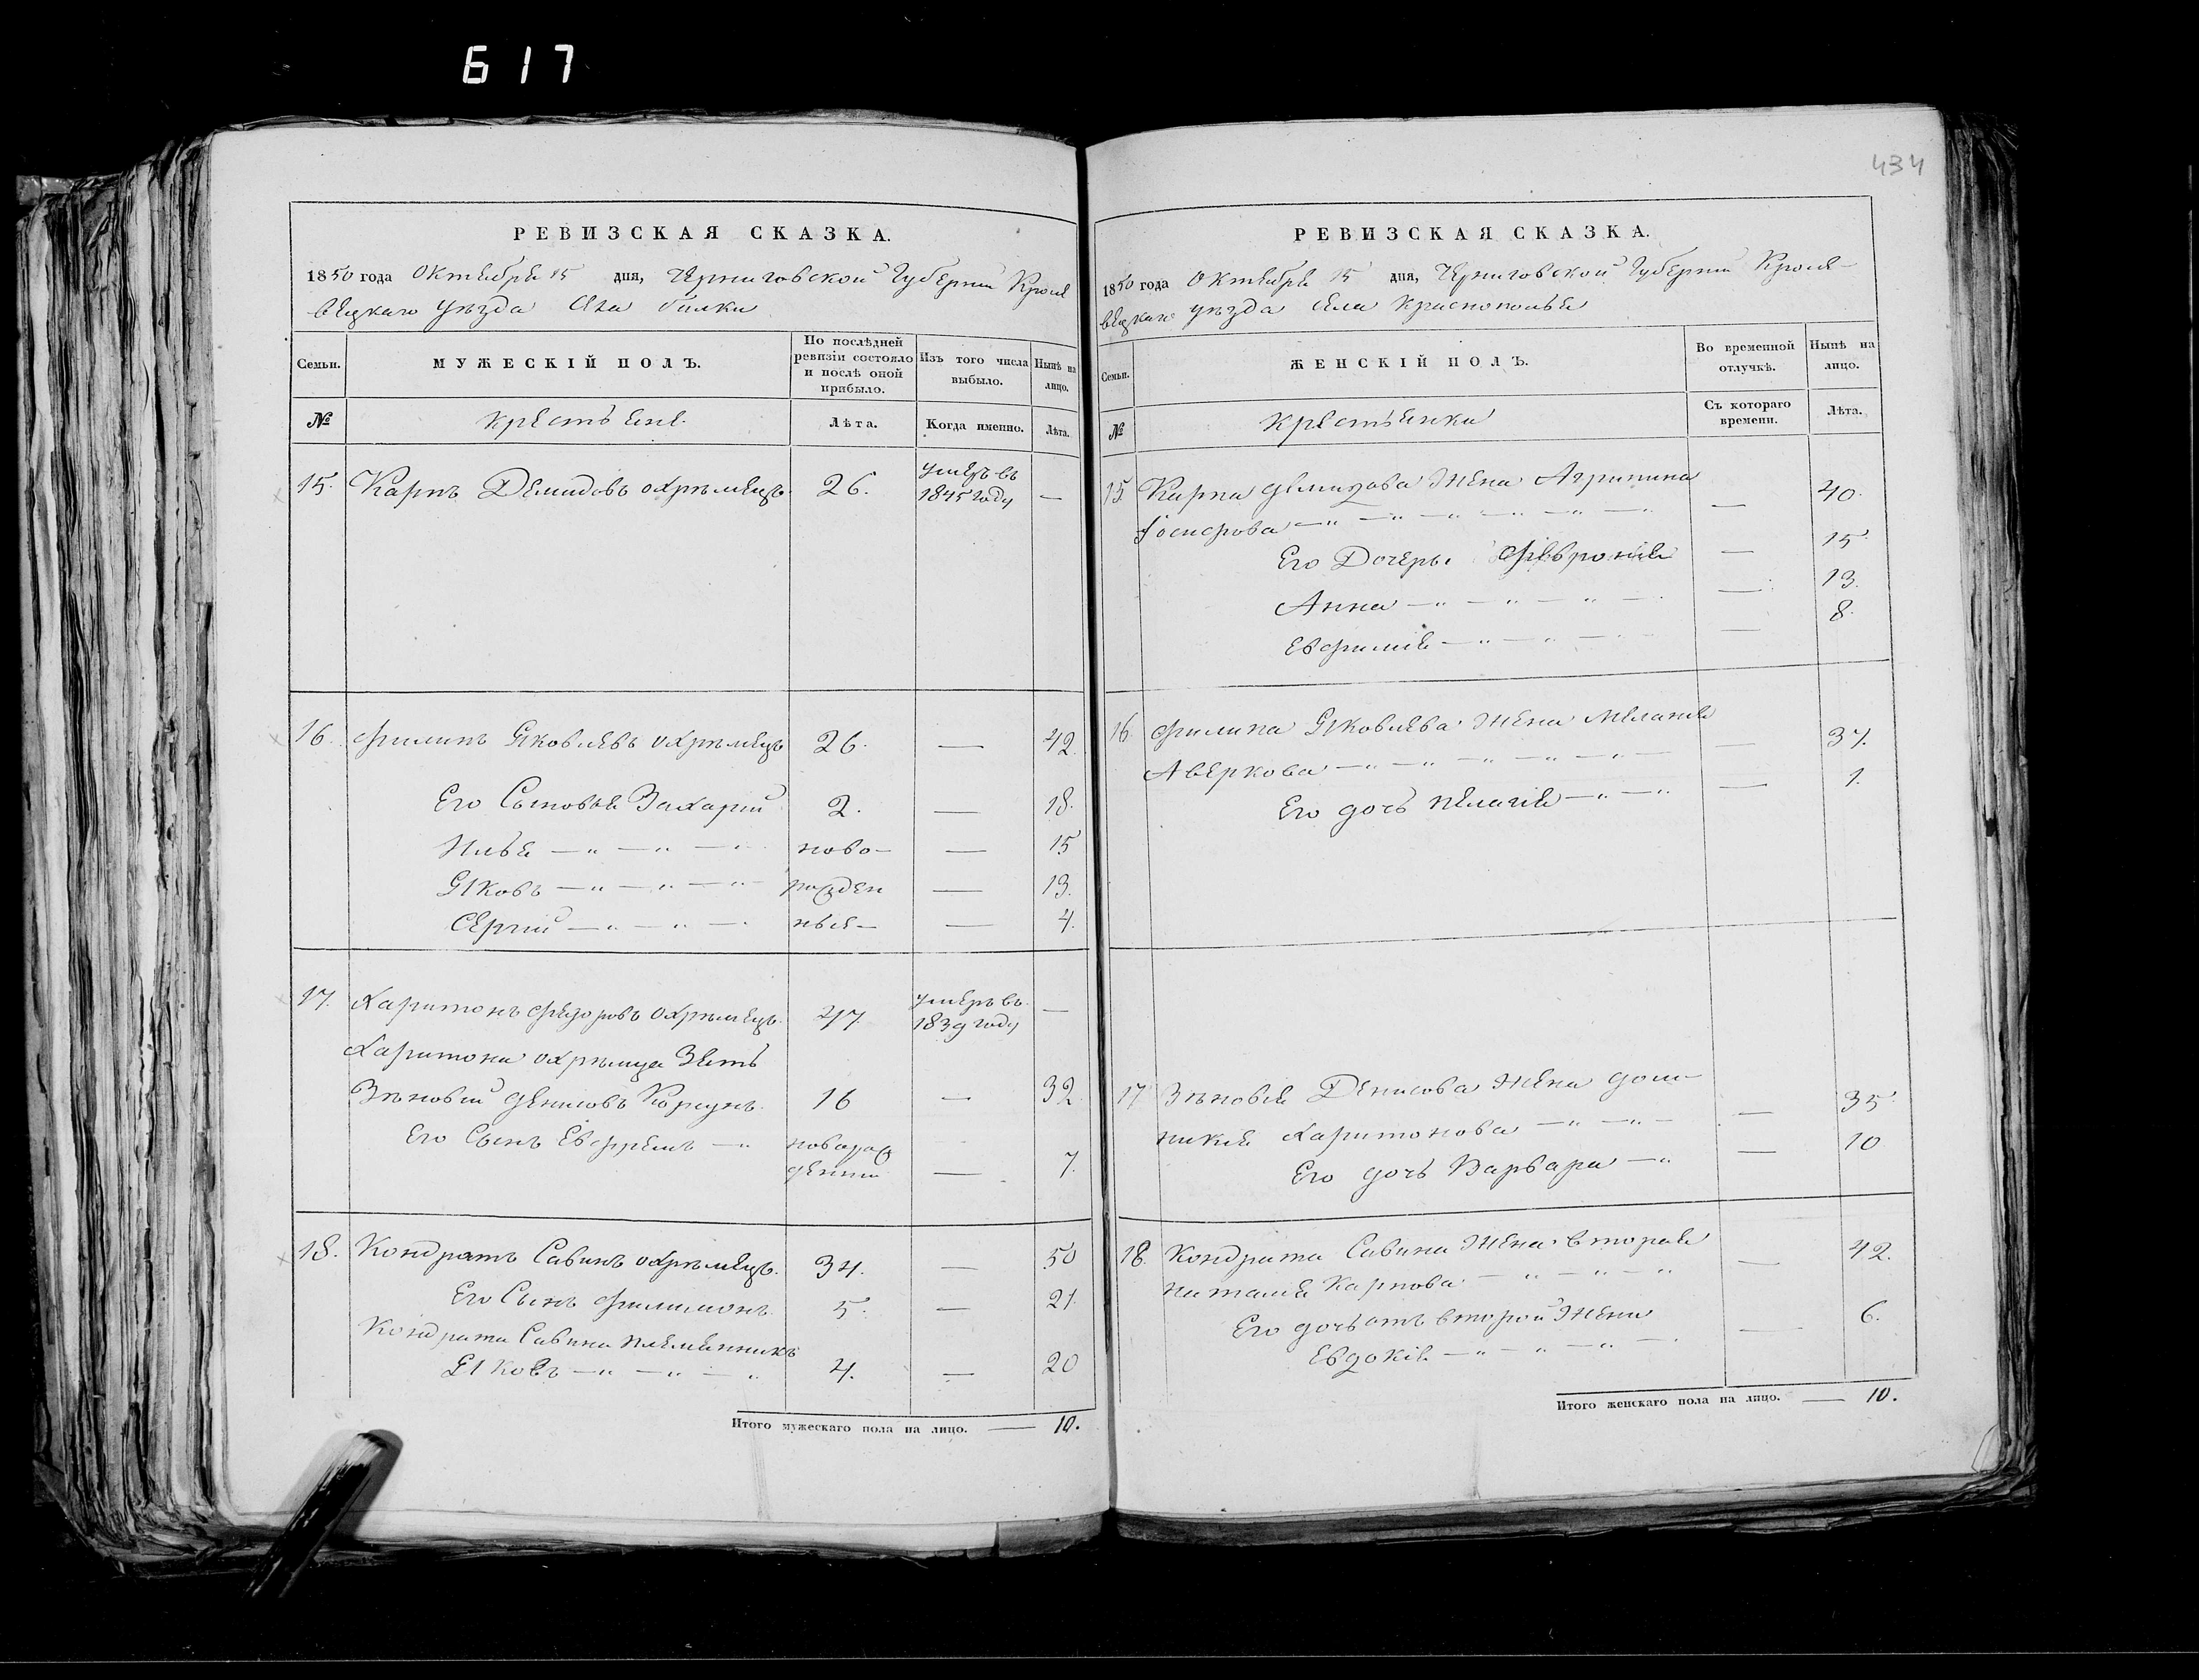 617
434
РЕВИЗСКАЯ СКАЗКА.
1850 года Октября 15 дня, Черниговской Губерніи Кроле
вецкаго уѣзда Села
МУЖЕСКІЙ ПОЛЪ.
Семьи.
По послѣдней
ревизіи состояло
и послѣ оной
прибыло.
Изъ того числа
выбыло.
Нынѣ на
лицо.
№ Крестьяне. Лѣта. Когда именно. Лѣта.
15. Карпъ Демидовъ Охрѣмецъ. 26. умеръ въ
1845 году —
16. Филипъ Яковлевъ Охрѣмецъ 26. — 42.
Его Сыновья Захарій 2. — 18.
Илья — „ — „ — ново- — 15
Яковъ — „ — „ — „ — рожден — 13.
Сергій — „ — „ — ные — — 4.
17. Харитонъ Федоровъ Охрѣмецъ. 47. умеръ въ
1839 году —
Харитона Охрѣмца Зять
Зѣновій Денисовъ Коржунъ. 16 — 32.
Его Сынъ Ефремъ — „ новорож
денній — 7.
18. Кондратъ Савинъ Охрѣмецъ. 34. — 50
Его Сынъ Филимонъ 5. — 21.
Кондрата Савина племянникъ
Яковъ — „ — „ — „ 4. — 20
Итого мужескаго пола на лицо. — 10.
РЕВИЗСКАЯ СКАЗКА.
1850 года Октября 15 дня, Черниговской Губерніи Кроле-
вецкаго уѣзда Села Краснополья
Семьи.
ЖЕНСКІЙ ПОЛЪ.
Во временной
отлучкѣ.
Нынѣ на
лицо.
№ Крестьянки Съ котораго
времени. Лѣта.
15 Карпа Демидова Жена Агрипина
Іосифова — „ — „ — „ — „ — „ — — 40.
Его Дочеры Февронія — 15.
Анна — „ — „ — „ — — 13.
Евфимія — „ — „ — — 8.
16. Филипа Яковлева Жена Меланія
Аверкова — „ — „ — „ — „ — „ — — 37.
Его дочь Пелагія — „ — „ — 1.
17 Зѣновія Денисова Жена Дом-
никія Харитонова — „ — „ — — 35.
Его дочь Варвара — „ — 10
18. Кондрата Савина Жена вторая
Наталія Карпова — „ — „ — „ — 42.
Его дочь отъ второй Жены
Евдокія — „ — „ — „ — — 6.
Итого женскаго пола на лицо. — 10.